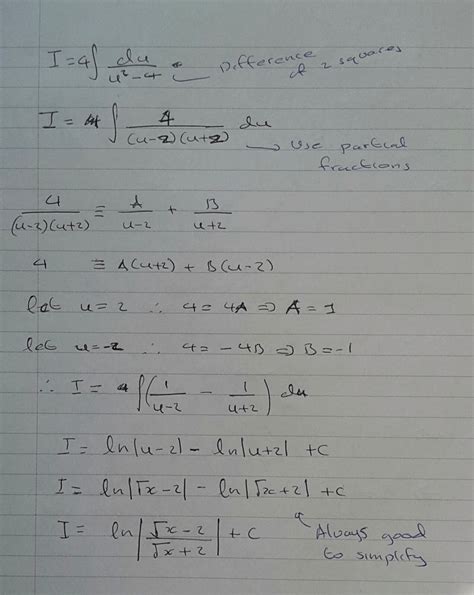 I = 4∫ du/(u²-4) Difference of 2 squares
I = ∫ 4/((u-2)(u+2)) du
Use partial fractions
4/((u-2)(u+2)) ≡ A/(u-2) + B/(u+2)
4 ≡ A(u+2) + B(u-2)
let u = 2 ∴ 4 = 4A ⇒ A = 1
let u = -2 ∴ 4 = -4B ⇒ B = -1
∴ I = ∫(1/(u-2) - 1/(u+2)) du
I = ln|u-2| - ln|u+2| + c
I = ln|√x-2| - ln|√x+2| + c
I = ln|(√x-2)/(√x+2)| + c
Always good
to simplify